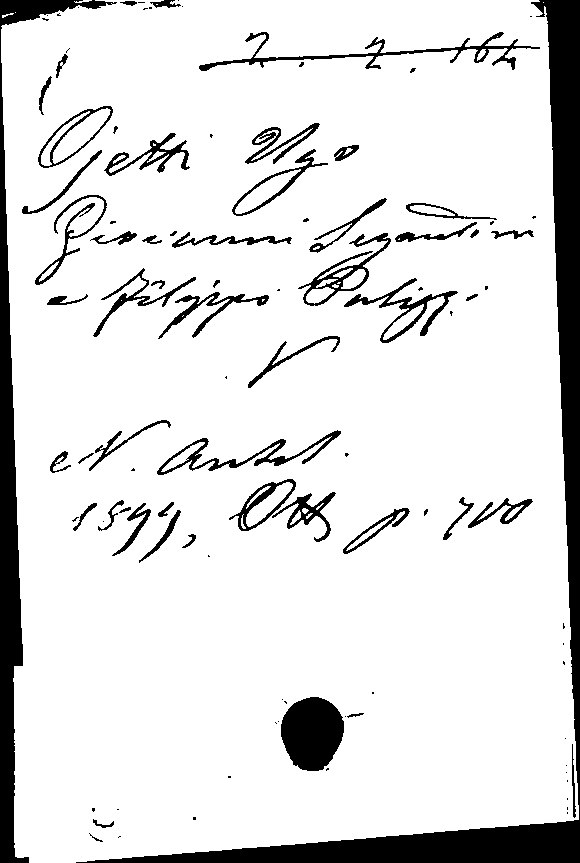 2. 2. 164
Ojetti Ugo
Giovanni Segantini
e Filippo Palizzi
V
N. Antol.
1899, Ott p. 700